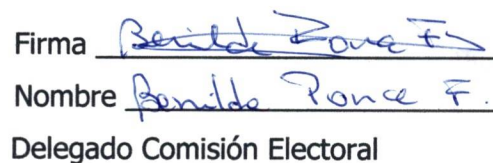 Firma Benilde Ponce F.
Nombre Benilde Ponce F.
Delegado Comisión Electoral